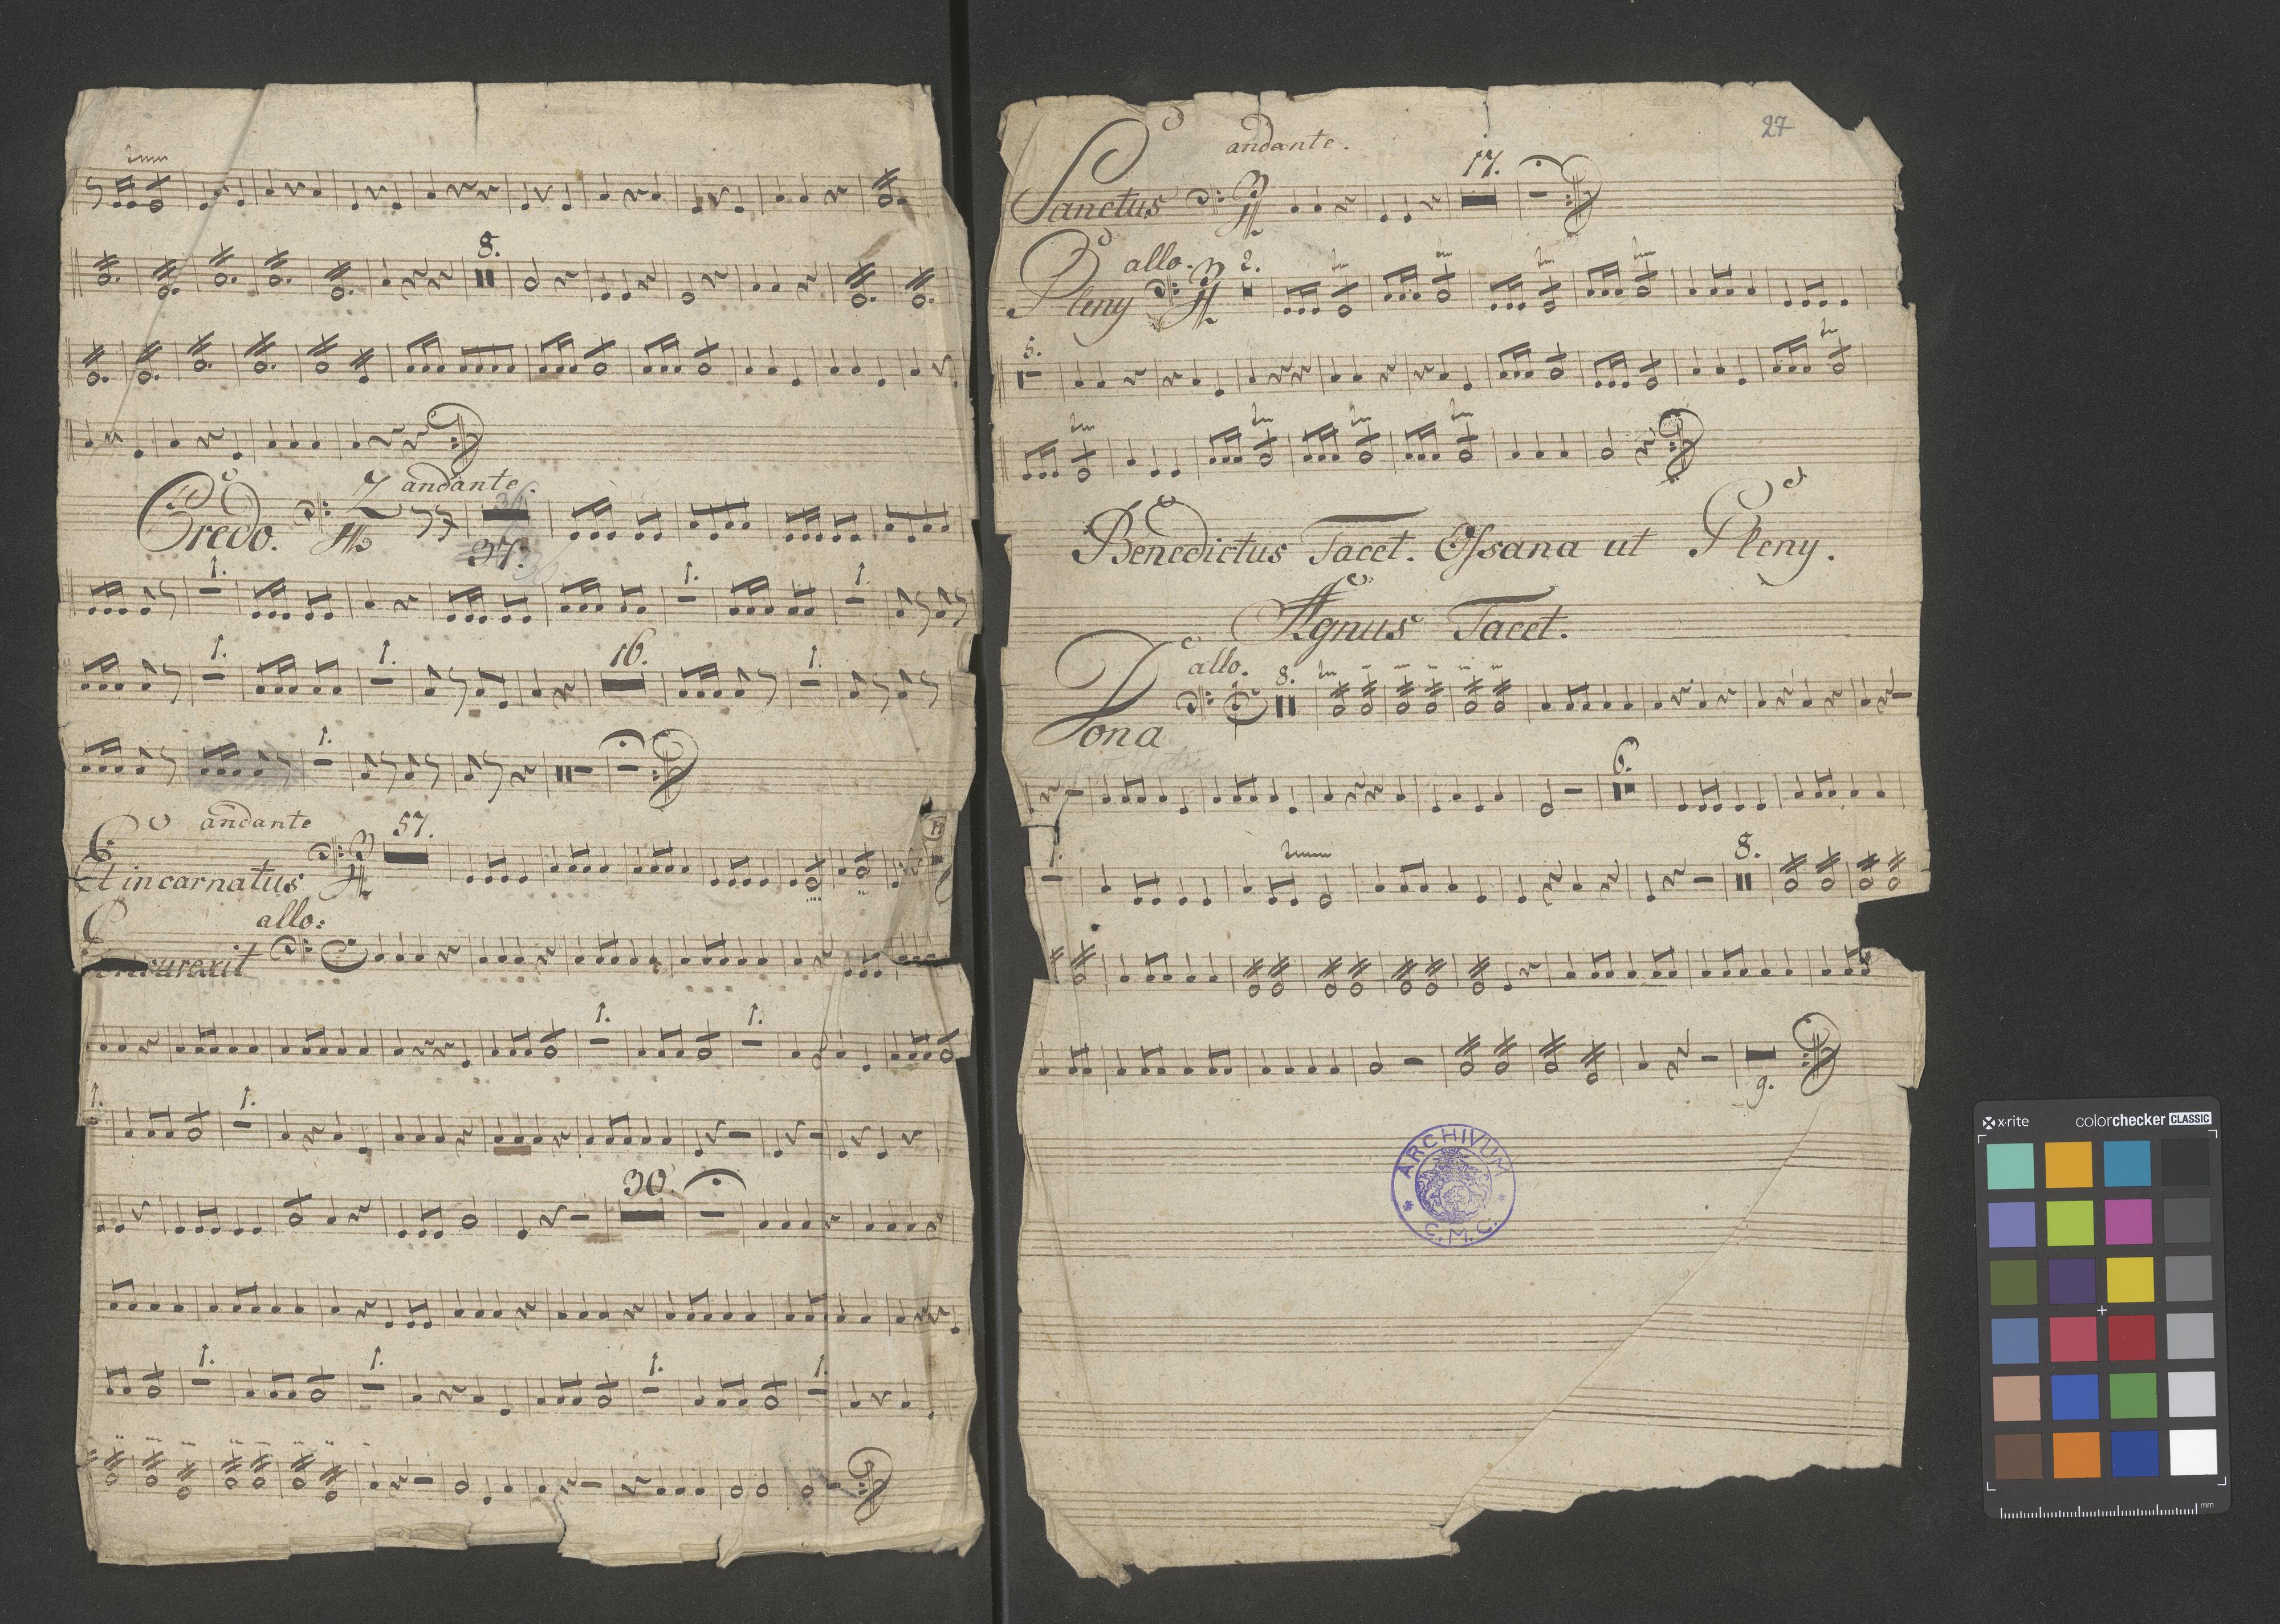 8.
Credo. 2/4 andante.
37.
1. 1. 1.
1. 1. 16. 1.
1.
Et incarnatus andante 3/4 57.
allo:
1. 1.
1. 1.
30.
1. 1. 1. 1.
27
Sanctus andante. 3/4 17.
Pleny allo. 3/4 2.
5.
Benedictus Tacet. Ossana ut Pleny.
Agnus Tacet.
Dona allo. 8.
6.
1. 8.
9.
ARCHIVUM
C. M. C.
x-rite colorchecker CLASSIC
mm